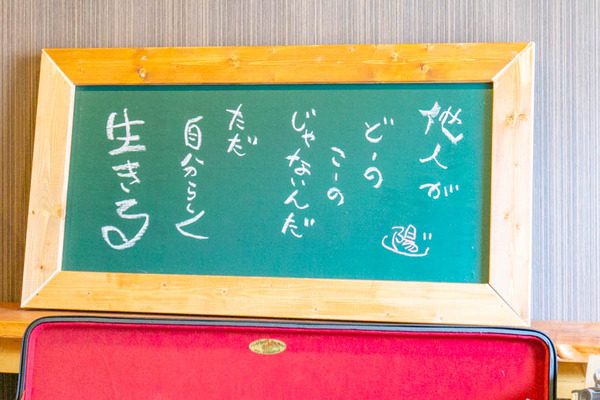 他人が
どーの
こーの
じゃないんだ
ただ
自分らしく
生きる
陽